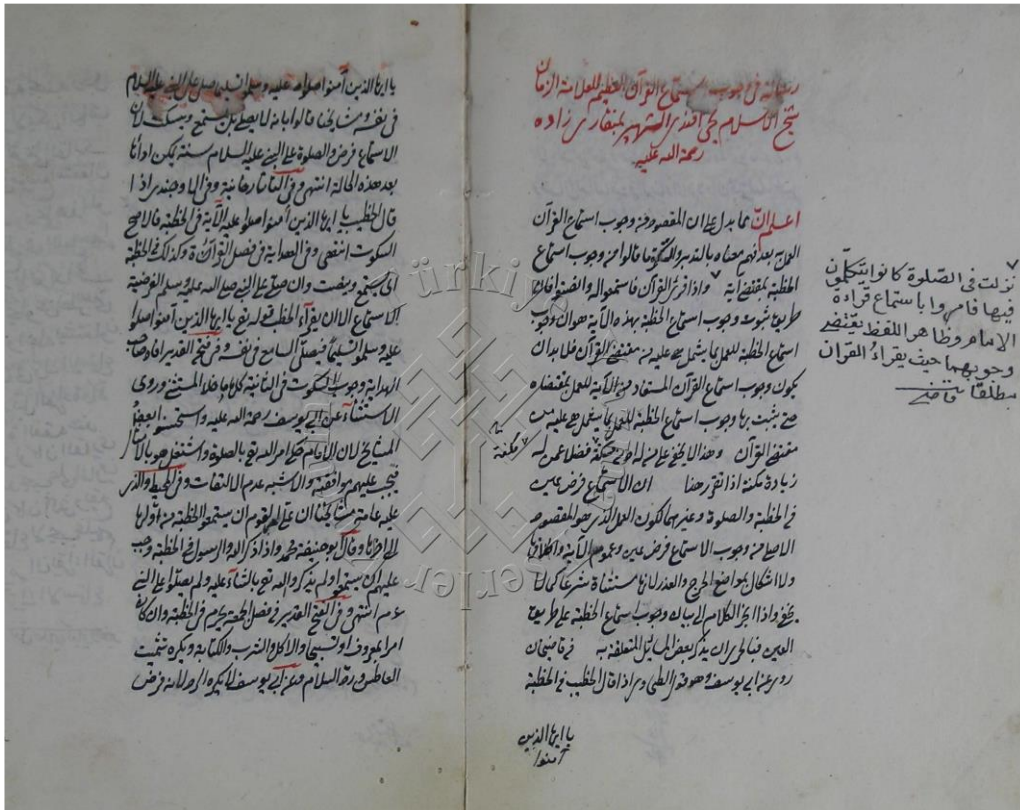 رسالة في وجوب استماع القرآن العظيم للعلامة الزمان
شيخ الاسلام يحيى افندى الشهير بمنقارى زاده
رحمة الله عليه
اعلم ان مما يدل على ان المقصود من وجوب استماع القرآن
العمل به بعد فهم معناه بالتدبر والتذكر ما قالوا من وجوب استماع
الخطبة بمقتضى آية واذا قرئ القرآن فاستمعوا له وانصتوا فان
طريق ثبوت وجوب استماع الخطبة بهذه الآية هو ان وجوب
استماع الخطبة للعمل بما يشتمل عليه من مقتضى القرآن فلا بد ان
يكون وجوب استماع القرآن المستفاد من الآية للعمل بمقتضاه
حتى يثبت بها وجوب استماع الخطبة للعمل بما يشتمل عليه من
مقتضى القرآن وهذا لا يخفى على من له ادنى مسكة فضلا عمن له
زيادة مكنة اذا تقرر هذا ان الاستماع فرض عين
في الخطبة والصلوة وغيرهما لكون العمل الذى هو المقصود
الاصلى من وجوب الاستماع فرض عين وعموم الآية واطلاقها
ولا اشكال بمواضع الحرج والعذر لانها مستثناة شرعا كما لا
يخفى واذا انجر الكلام الى بيان وجوب استماع الخطبة على طريق
العين فبالحرى ان يذكر بعض المسائل المتعلقة به في قاضيخان
روى عن ابى يوسف وهو قول الطحاوى اذا قال الخطيب في الخطبة
يا ايها الذين
آمنوا
نزلت في الصلوة كانوا يتكلمون
فيها فامروا باستماع قراءة
الامام وظاهر اللفظ يقتضى
وجوبهما حيث يقراء القرآن
مطلقا قاضى
يا ايها الذين آمنوا صلوا عليه وسلموا تسليما صلى على النبي عليه السلام
في نفسه ومشايخنا قالوا بانه لا يصلى بل يستمع ويسكت لان
الاستماع فرض والصلوة على النبي عليه السلام سنة يمكن اداؤها
بعد هذه الحالة انتهى وفي التاتارخانية وفي الحاوى اذا
قال الخطيب يا ايها الذين آمنوا صلوا عليه الآية في الخطبة فالاصح
السكوت انتهى وفي الهداية في فصل القرآءة وكذلك في الخطبة
اى يستمع وينصت وان صلى على النبي صلى الله عليه وسلم لفرضية
الاستماع الا ان يقرأ الخطيب قوله تعالى يا ايها الذين آمنوا صلوا
عليه وسلموا تسليما فيصلى السامع في نفسه وفي فتح القدير افاد صاحب
الهداية وجوب السكوت في الثانية كلها ما خلا المستثنى وروى
الاستثناء عن ابى يوسف رحمة الله عليه واستحسنه بعض
المشايخ لان الامام حكى امر الله تعالى بالصلوة واشتغل هو بالامتثال
فيجب عليهم موافقته والاشبه عدم الالتفات وفي المحيط والذى
عليه عامة مشايخنا ان على القوم ان يستمعوا الخطبة من اولها
الى آخرها وقال ابو حنيفة ومحمد واذا ذكر الله والرسول في الخطبة وجب
عليهم ان يستمعوا ولم يذكروا الله تعالى بالثناء عليه ولم يصلوا على النبي
عم انتهى وفي فتح القدير في فصل الجمعة يحرم في الخطبة وان كان
امرا بمعروف او تسبيحا والاكل والشرب والكتابة ويكره تشميت
العاطس ورد السلام وعن ابى يوسف لا يكره الرد لانه فرض
Türkiye